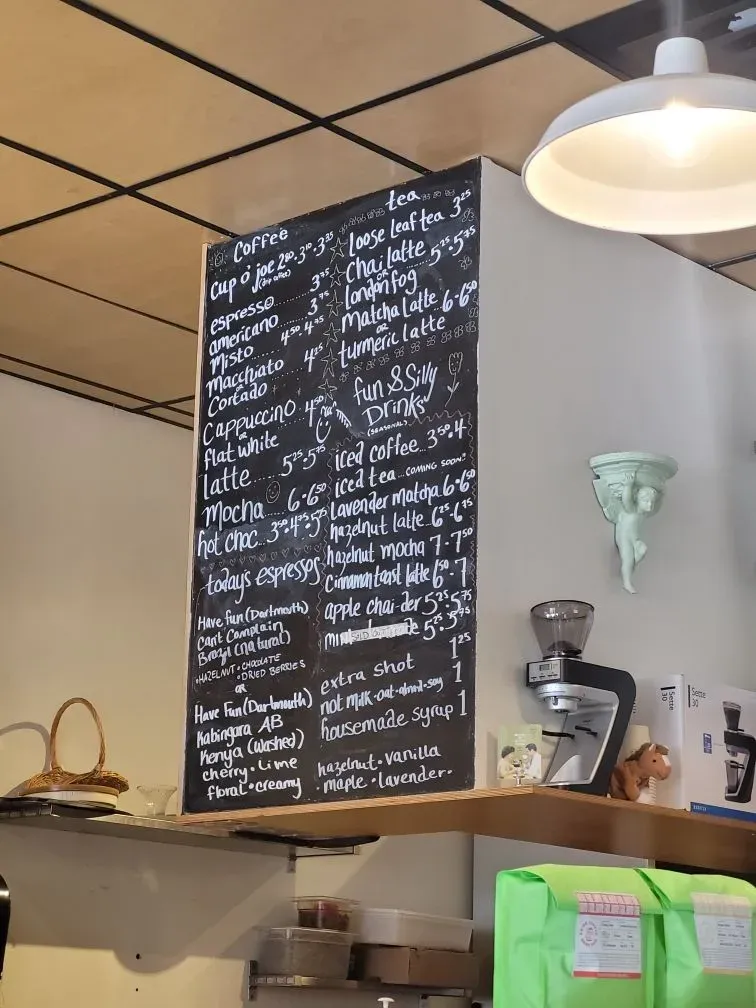 Coffee
cup o' joe 2⁸⁰.3¹⁰.3²⁵
espresso.........3⁷⁵
americano......3⁷⁵
Misto......4⁵⁰ 4⁷⁵
Macchiato
or
Cortado
4²⁵
Cappuccino..4⁵⁰
or
flat white
latte......5²⁵.5⁷⁵
mocha....6.6⁵⁰
hot choc...3⁵⁰.4⁷⁵.5⁷⁵
today's espressos
Have fun (Dartmouth)
Can't Complain
Brazil (natural)
•HAZELNUT • CHOCOLATE
•DRIED BERRIES
or
Have Fun (Dartmouth)
Kabingara AB
Kenya (washed)
cherry • lime
floral • creamy
tea
loose leaf tea 3²⁵
Chai latte
or
london fog
5²⁵.5⁷⁵
Matcha latte..6.6⁵⁰
or
turmeric latte
fun & Silly
Drinks
(SEASONAL)
iced coffee...3⁵⁰.4
iced tea...COMING SOON!!
lavender matcha 6.6⁵⁰
hazelnut latte...6²⁵.6⁷⁵
hazelnut mocha 7-7⁵⁰
cinnamon toast latte 6⁵⁰.7
apple chai-der 5²⁵.5⁷⁵
SOLD 5²⁵.5⁷⁵
extra shot 1²⁵
not milk-oat-almond-soy 1
housemade syrup 1
hazelnut • vanilla
maple • lavender •
Sette
30
Sette
30